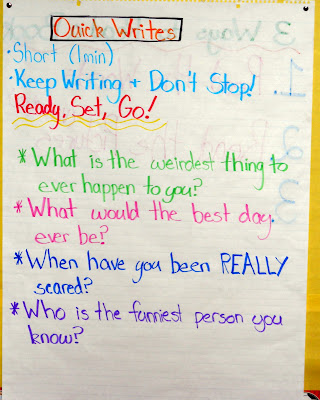 Quick Writes
• Short (1min)
• Keep Writing + Don't Stop!
Ready, Set, Go!
* What is the weirdest thing to
ever happen to you?
* What would the best day
ever be?
* When have you been REALLY
scared?
* Who is the funniest person you
know?
3 Ways
1.
2
3